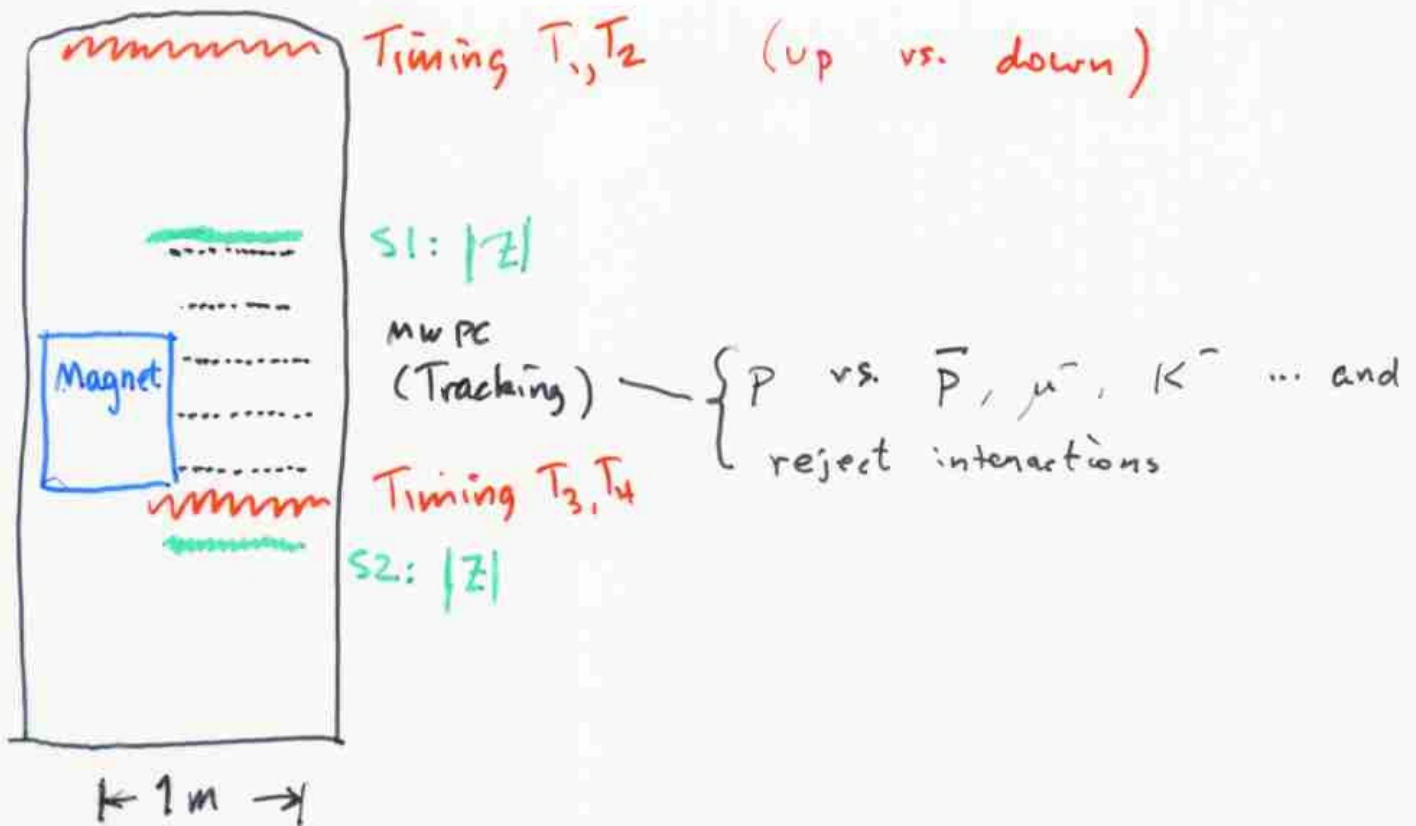 Timing T1, T2 (up vs. down)
S1: |Z|
MWPC
(Tracking)
Magnet
p vs. p̄, μ⁻, K⁻ ... and
reject interactions
Timing T3, T4
S2: |Z|
1 m